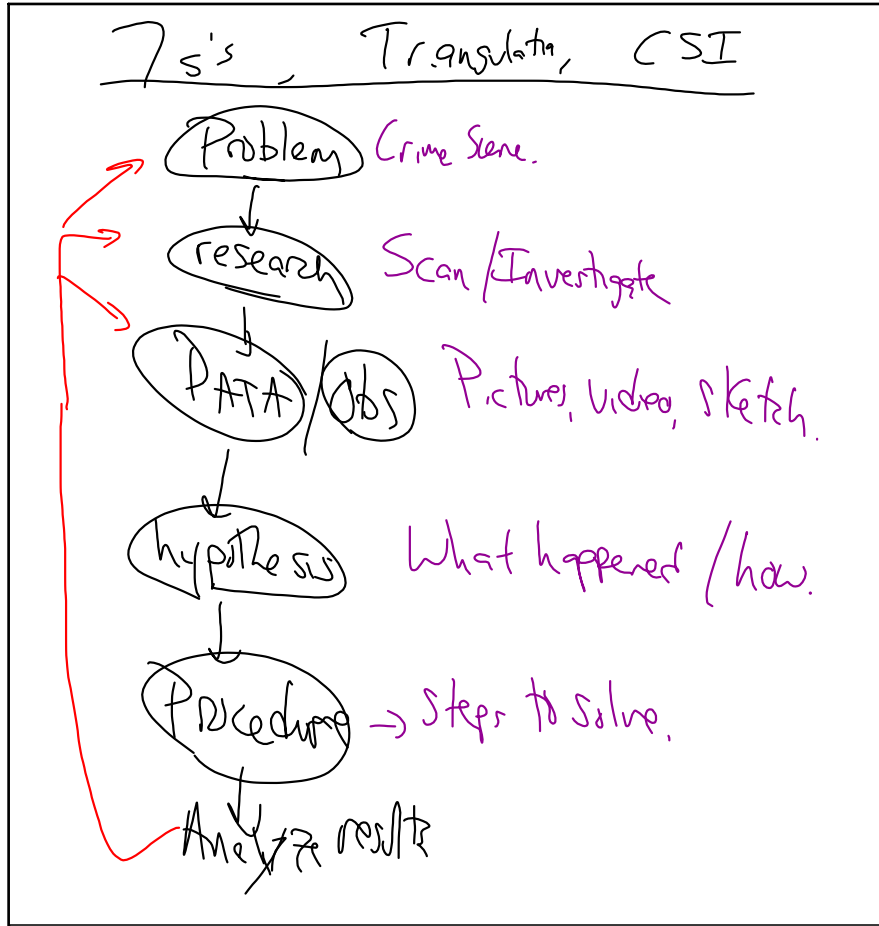 7 s's, Triangulatin, CSI
Problem Crime Scene.
research Scan/Investigate
DATA/Obs Pictures, video, sketch.
hypothesis What happened/how.
Procedure → Steps to solve.
Analyze results